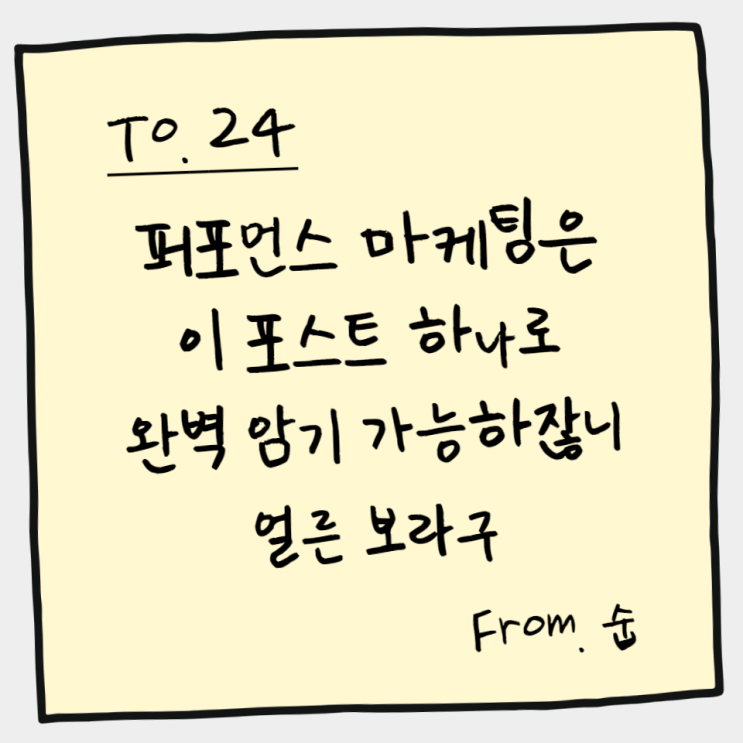 TO. 24
퍼포먼스 마케팅은
이 포스트 하나로
완벽 암기 가능하잖니
얼른 보라구
From. 숩